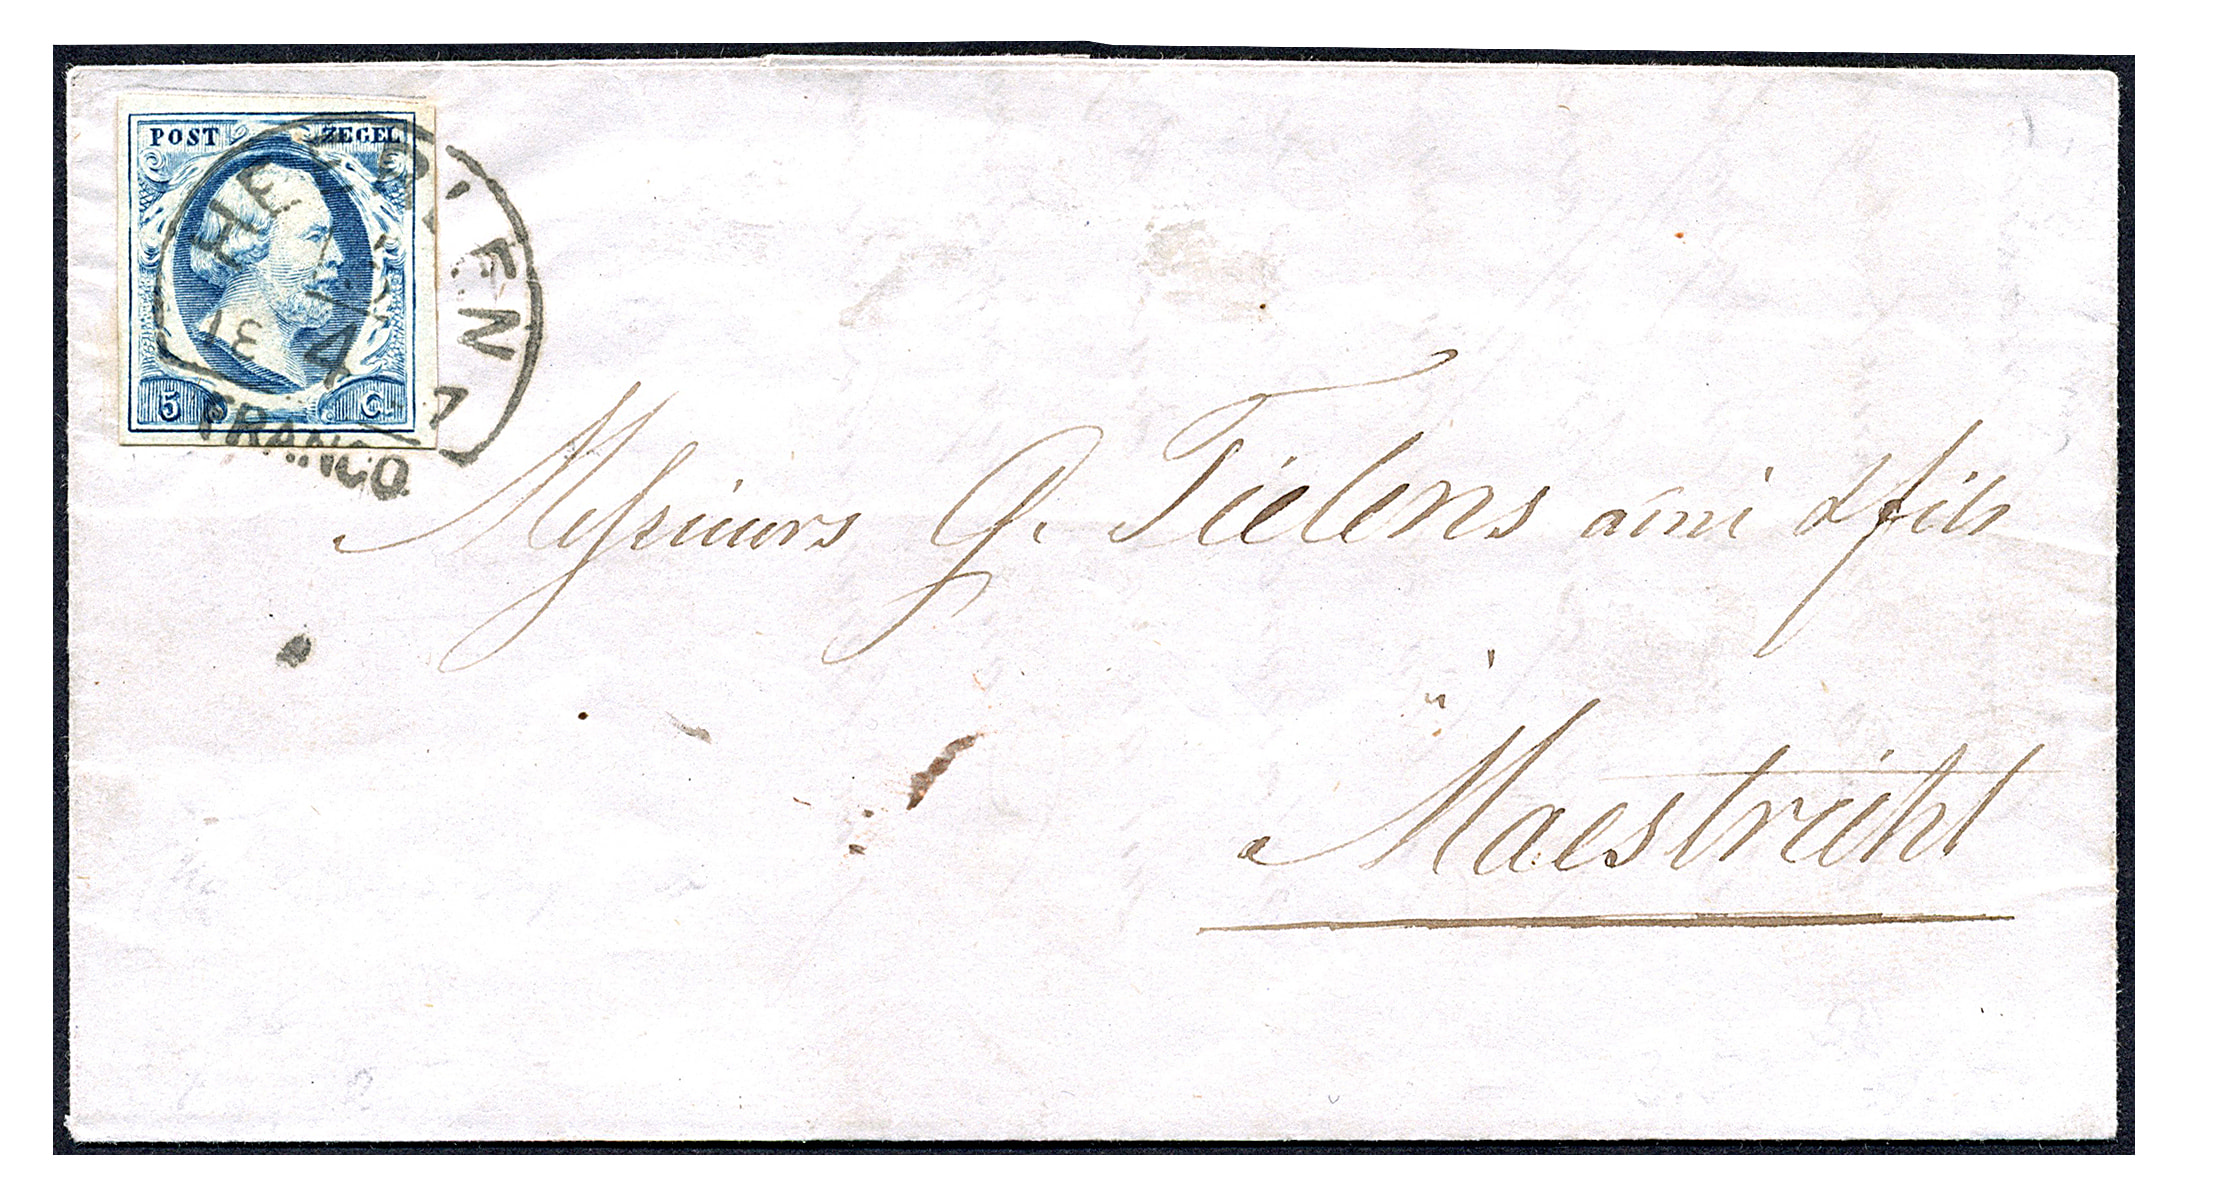 POST ZEGEL
5 Ct.
FRANCO.
Messieurs G. Tielens ainé & fils
à
Maestricht